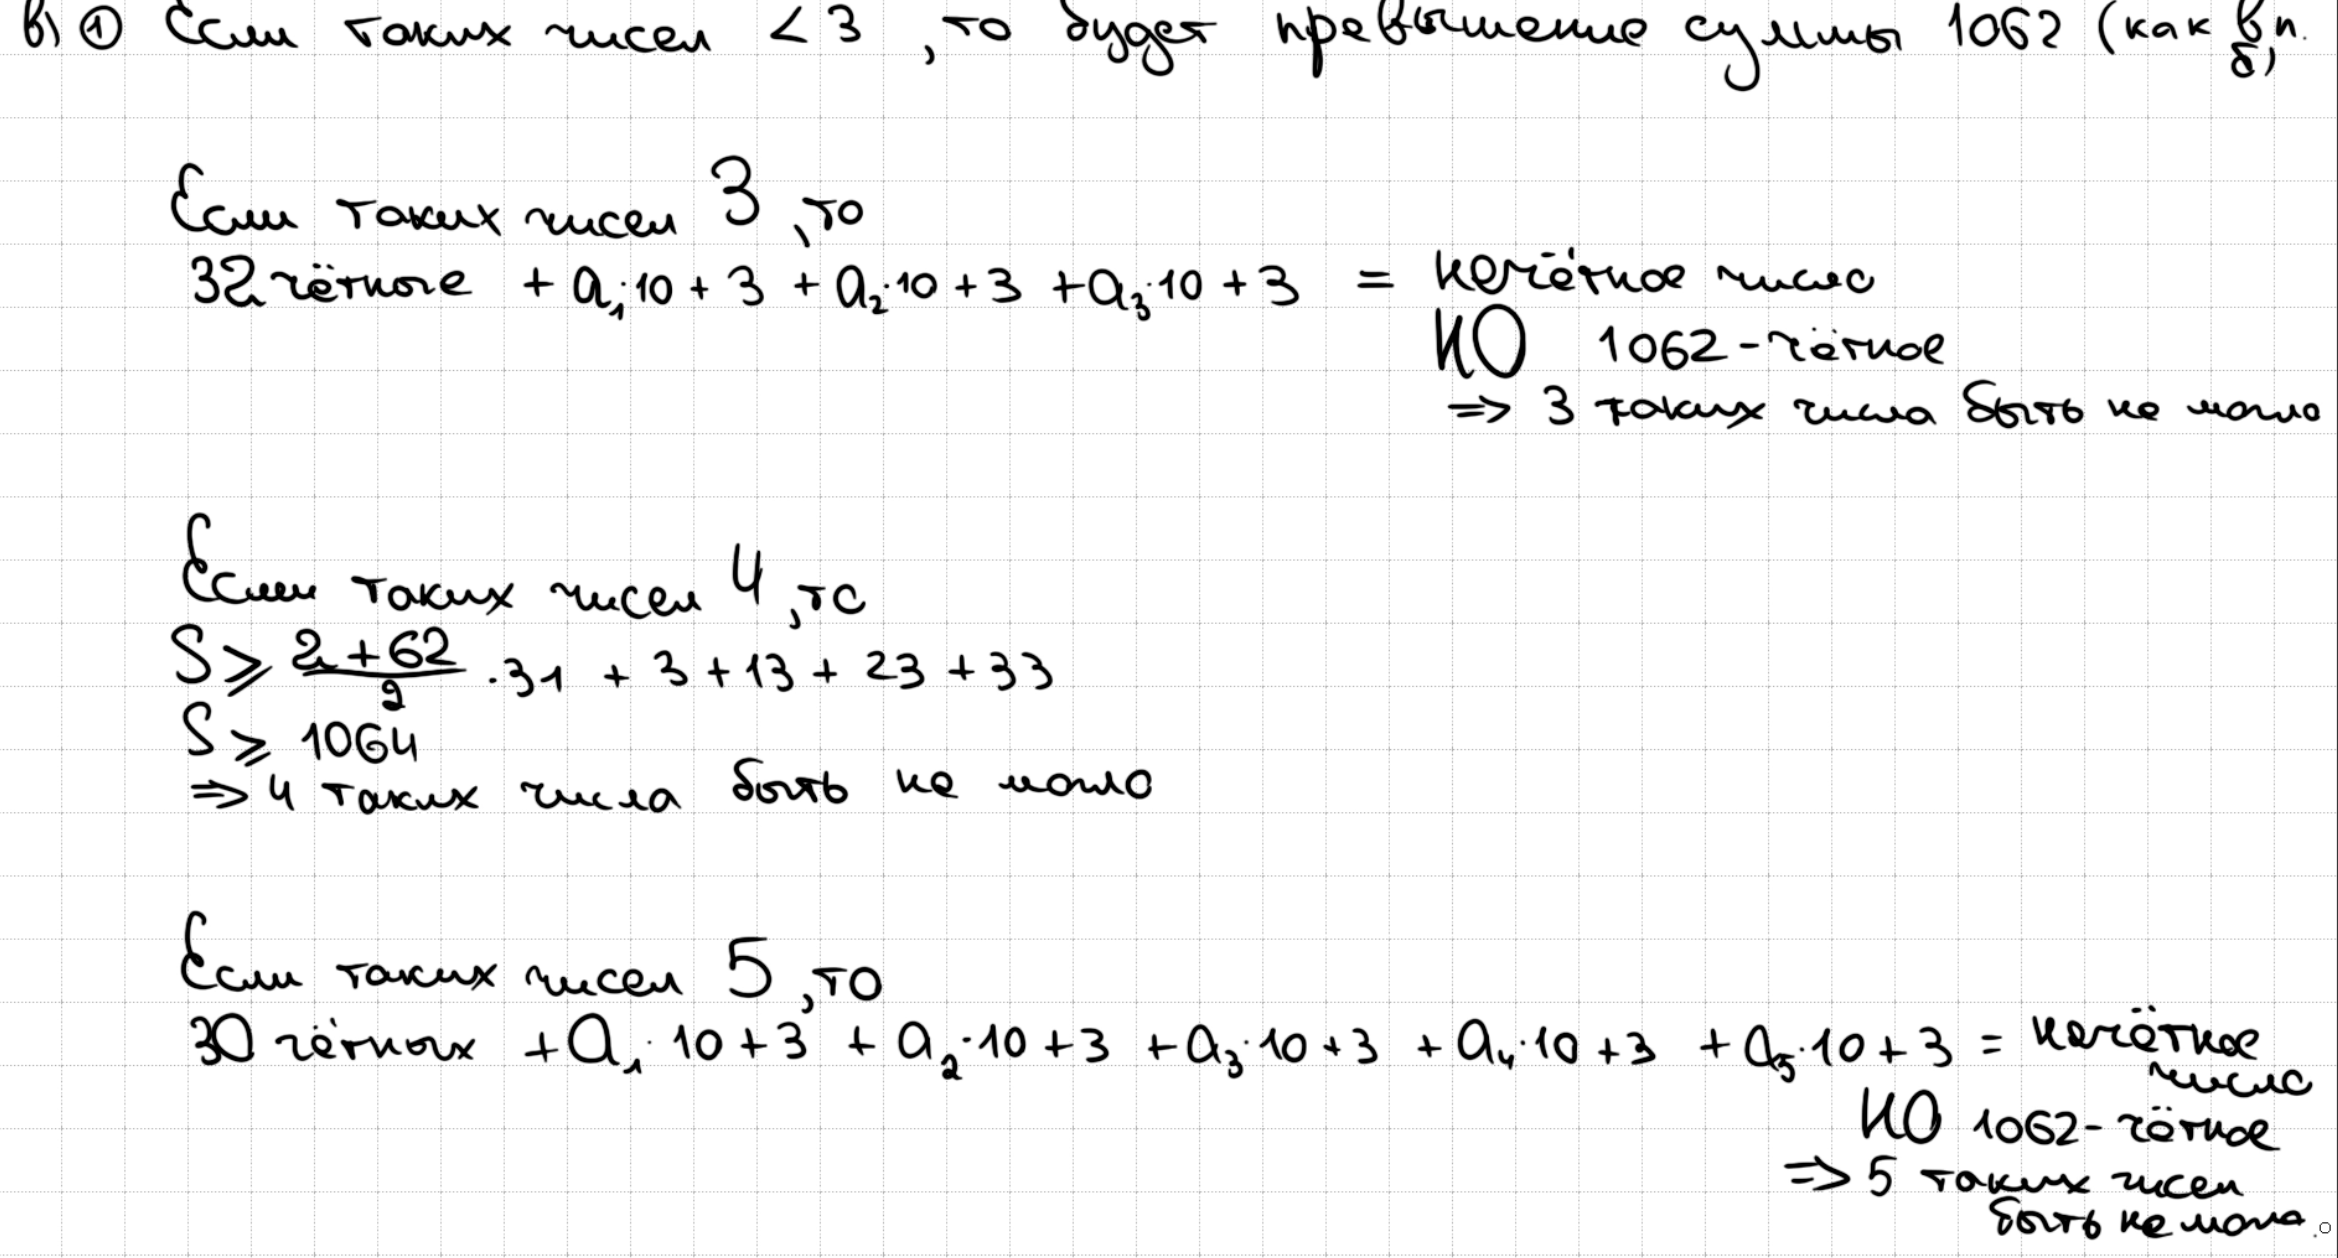 в) ① Если таких чисел < 3, то будет превышение суммы 1062 (как в п. б)
Если таких чисел 3, то
32 чётные + a₁·10 + 3 + a₂·10 + 3 + a₃·10 + 3 = нечётное число
НО 1062 - чётное
=> 3 таких числа быть не могло
Если таких чисел 4, то
S ⩾ (2 + 62)/2 · 31 + 3 + 13 + 23 + 33
S ⩾ 1064
=> 4 таких числа быть не могло
Если таких чисел 5, то
30 чётных + a₁·10 + 3 + a₂·10 + 3 + a₃·10 + 3 + a₄·10 + 3 + a₅·10 + 3 = нечётное
число
НО 1062 - чётное
=> 5 таких чисел
быть не могло.